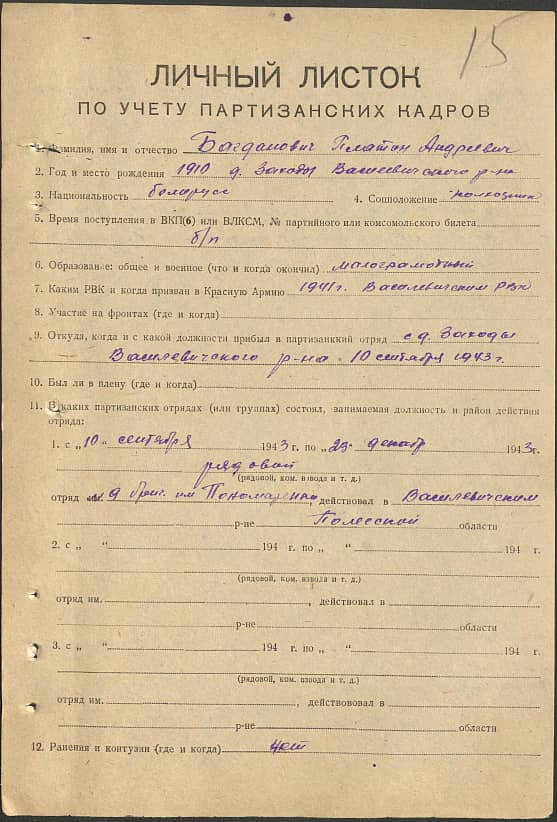 15
ЛИЧНЫЙ ЛИСТОК
ПО УЧЕТУ ПАРТИЗАНСКИХ КАДРОВ
1. Фамилия, имя и отчество Богданович Платон Андреевич
2. Год и место рождения 1910 д. Заходы Василевичского р-на
3. Национальность беларусс 4. Соцположение колхозник
5. Время поступления в ВКП(б) или ВЛКСМ, № партийного или комсомольского билета
б/п
6. Образование: общее и военное (что и когда окончил) малограмотный
7. Каким РВК и когда призван в Красную Армию 1941г. Василевичским РВК
8. Участие на фронтах (где и когда)
9. Откуда, когда и с какой должности прибыл в партизанкский отряд с д. Заходы
Василевичского р-на 10 сентября 1943 г.
10. Был ли в плену (где и когда)
11. В каких партизанских отрядах (или группах) состоял, занимаемая должность и район действия
отряда:
1. с „10" сентября 1943 г. по „23" декабр 1943 г.
рядовой
(рядовой, ком. взвода и т. д.)
отряд 9 бриг. им Пономаренко, действовал в Василевичским
р-не Полесской области
2. с „ " 194 г. по „ " 194 г.
(рядовой, ком. взвода и т. д.)
отряд им. , действовал в
р-не области
3. с „ " 194 г. по „ " 194 г.
(рядовой, ком. взвода и т. д.)
отряд им. , действовал в
р-не области
12. Ранения и контузии (где и когда) нет